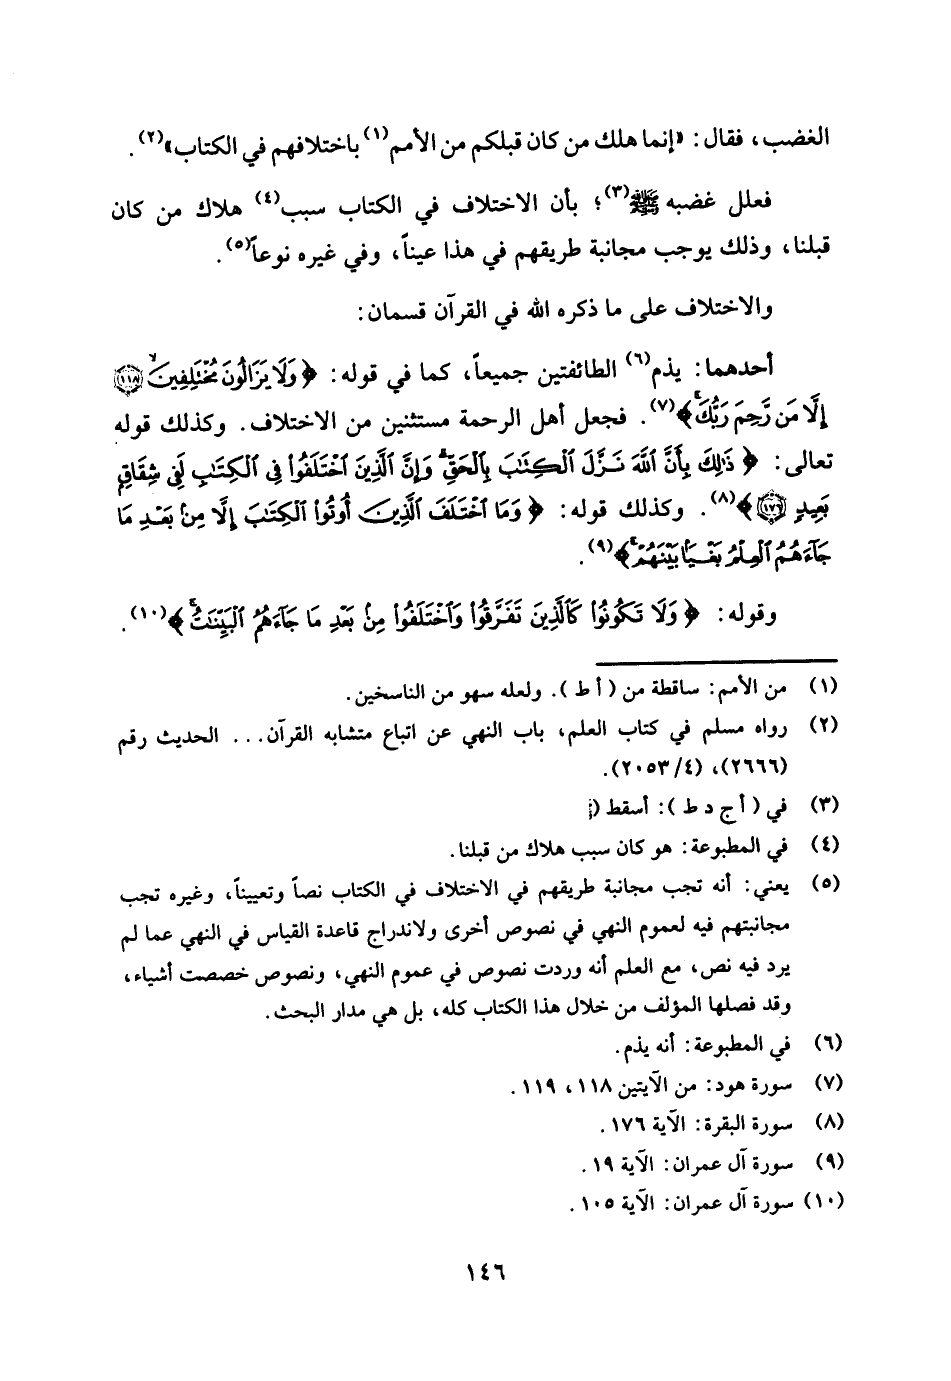 الغضب، فقال: «إنما هلك من كان قبلكم من الأمم(١) باختلافهم في الكتاب»(٢).
فعلل غضبه ﷺ(٣)؛ بأن الاختلاف في الكتاب سبب(٤) هلاك من كان
قبلنا، وذلك يوجب مجانبة طريقهم في هذا عيناً، وفي غيره نوعاً(٥).
والاختلاف على ما ذكره الله في القرآن قسمان:
أحدهما: يذم(٦) الطائفتين جميعاً، كما في قوله: ﴿وَلَا يَزَالُونَ مُخْتَلِفِينَ ۙ ١١٨
إِلَّا مَن رَّحِمَ رَبُّكَ ۚ﴾(٧). فجعل أهل الرحمة مستثنين من الاختلاف. وكذلك قوله
تعالى: ﴿ذَٰلِكَ بِأَنَّ ٱللَّهَ نَزَّلَ ٱلْكِتَٰبَ بِٱلْحَقِّ ۗ وَإِنَّ ٱلَّذِينَ ٱخْتَلَفُوا۟ فِى ٱلْكِتَٰبِ لَفِى شِقَاقٍ
بَعِيدٍ ١٧٦﴾(٨). وكذلك قوله: ﴿وَمَا ٱخْتَلَفَ ٱلَّذِينَ أُوتُوا۟ ٱلْكِتَٰبَ إِلَّا مِنۢ بَعْدِ مَا
جَآءَهُمُ ٱلْعِلْمُ بَغْيًۢا بَيْنَهُمْ ۗ﴾(٩).
وقوله: ﴿وَلَا تَكُونُوا۟ كَٱلَّذِينَ تَفَرَّقُوا۟ وَٱخْتَلَفُوا۟ مِنۢ بَعْدِ مَا جَآءَهُمُ ٱلْبَيِّنَٰتُ ۚ﴾(١٠).
(١) من الأمم: ساقطة من (أ ط). ولعله سهو من الناسخين.
(٢) رواه مسلم في كتاب العلم، باب النهي عن اتباع متشابه القرآن... الحديث رقم
(٢٦٦٦)، (٤/ ٢٠٥٣).
(٣) في (أ ج د ط): أسقط (
(٤) في المطبوعة: هو كان سبب هلاك من قبلنا.
(٥) يعني: أنه تجب مجانبة طريقهم في الاختلاف في الكتاب نصاً وتعييناً، وغيره تجب
مجانبتهم فيه لعموم النهي في نصوص أخرى ولاندراج قاعدة القياس في النهي عما لم
يرد فيه نص، مع العلم أنه وردت نصوص في عموم النهي، ونصوص خصصت أشياء،
وقد فصلها المؤلف من خلال هذا الكتاب كله، بل هي مدار البحث.
(٦) في المطبوعة: أنه يذم.
(٧) سورة هود: من الآيتين ١١٨، ١١٩.
(٨) سورة البقرة: الآية ١٧٦.
(٩) سورة آل عمران: الآية ١٩.
(١٠) سورة آل عمران: الآية ١٠٥.
١٤٦